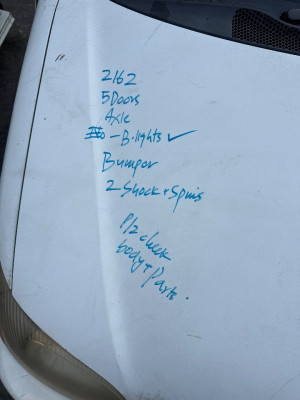 2162
5 Doors
Axle
- B.lights ✓
Bumpor
2 Shock + Spris
Plz check
body + Parts.